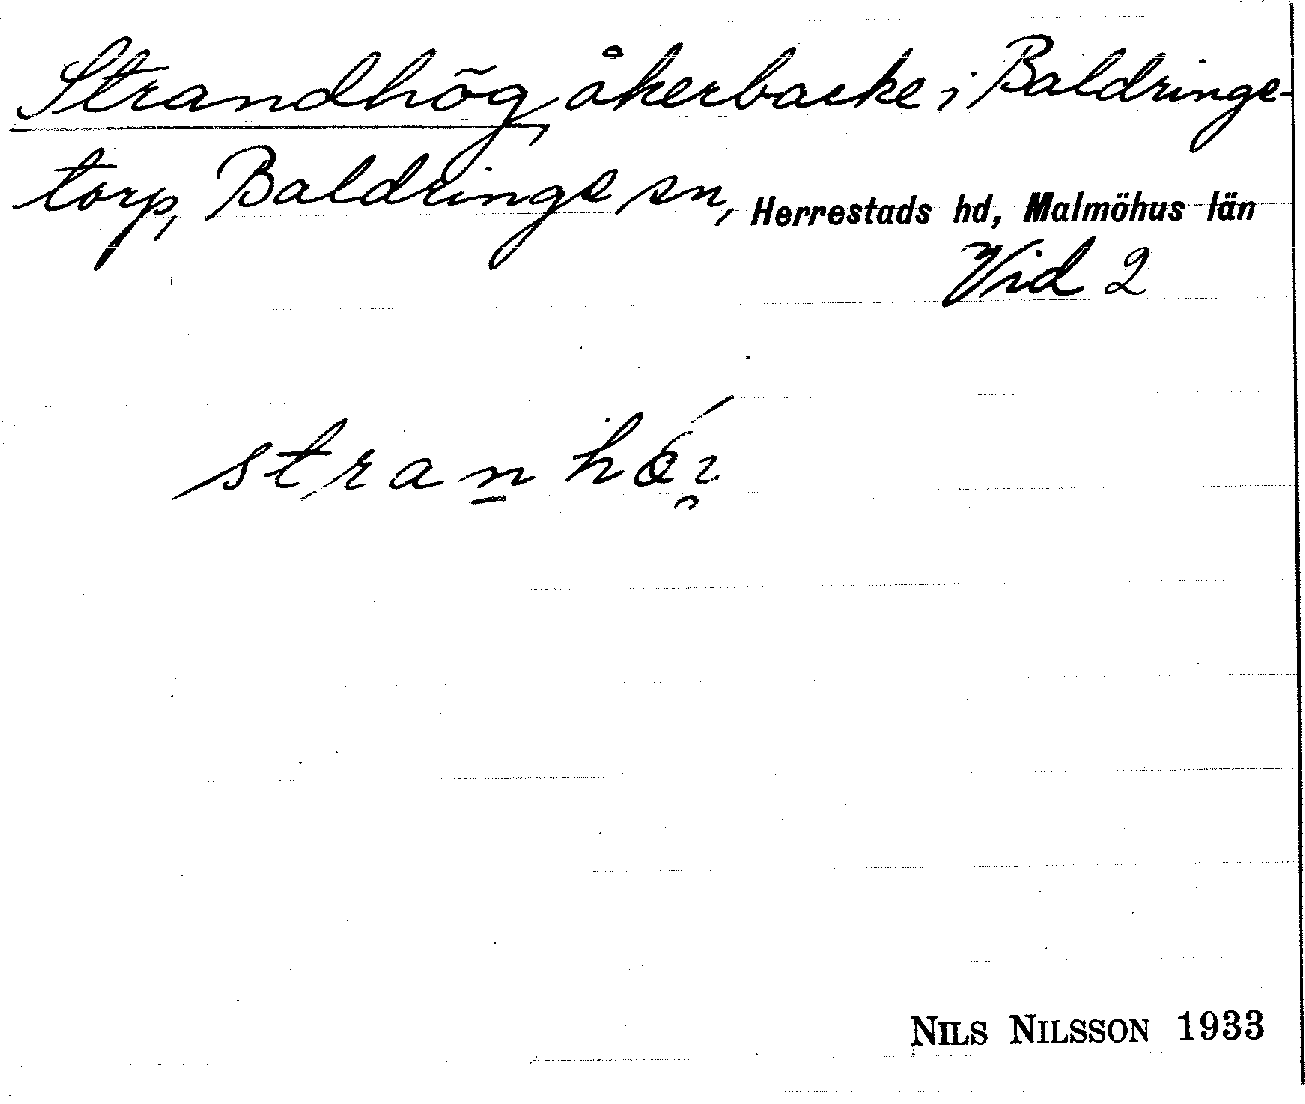 Strandhög, åkerbacke i Baldringe-
torp, Baldringe sn, Herrestads hd, Malmöhus län
Vid 2
stran̠hǿi̯
NILS NILSSON 1933